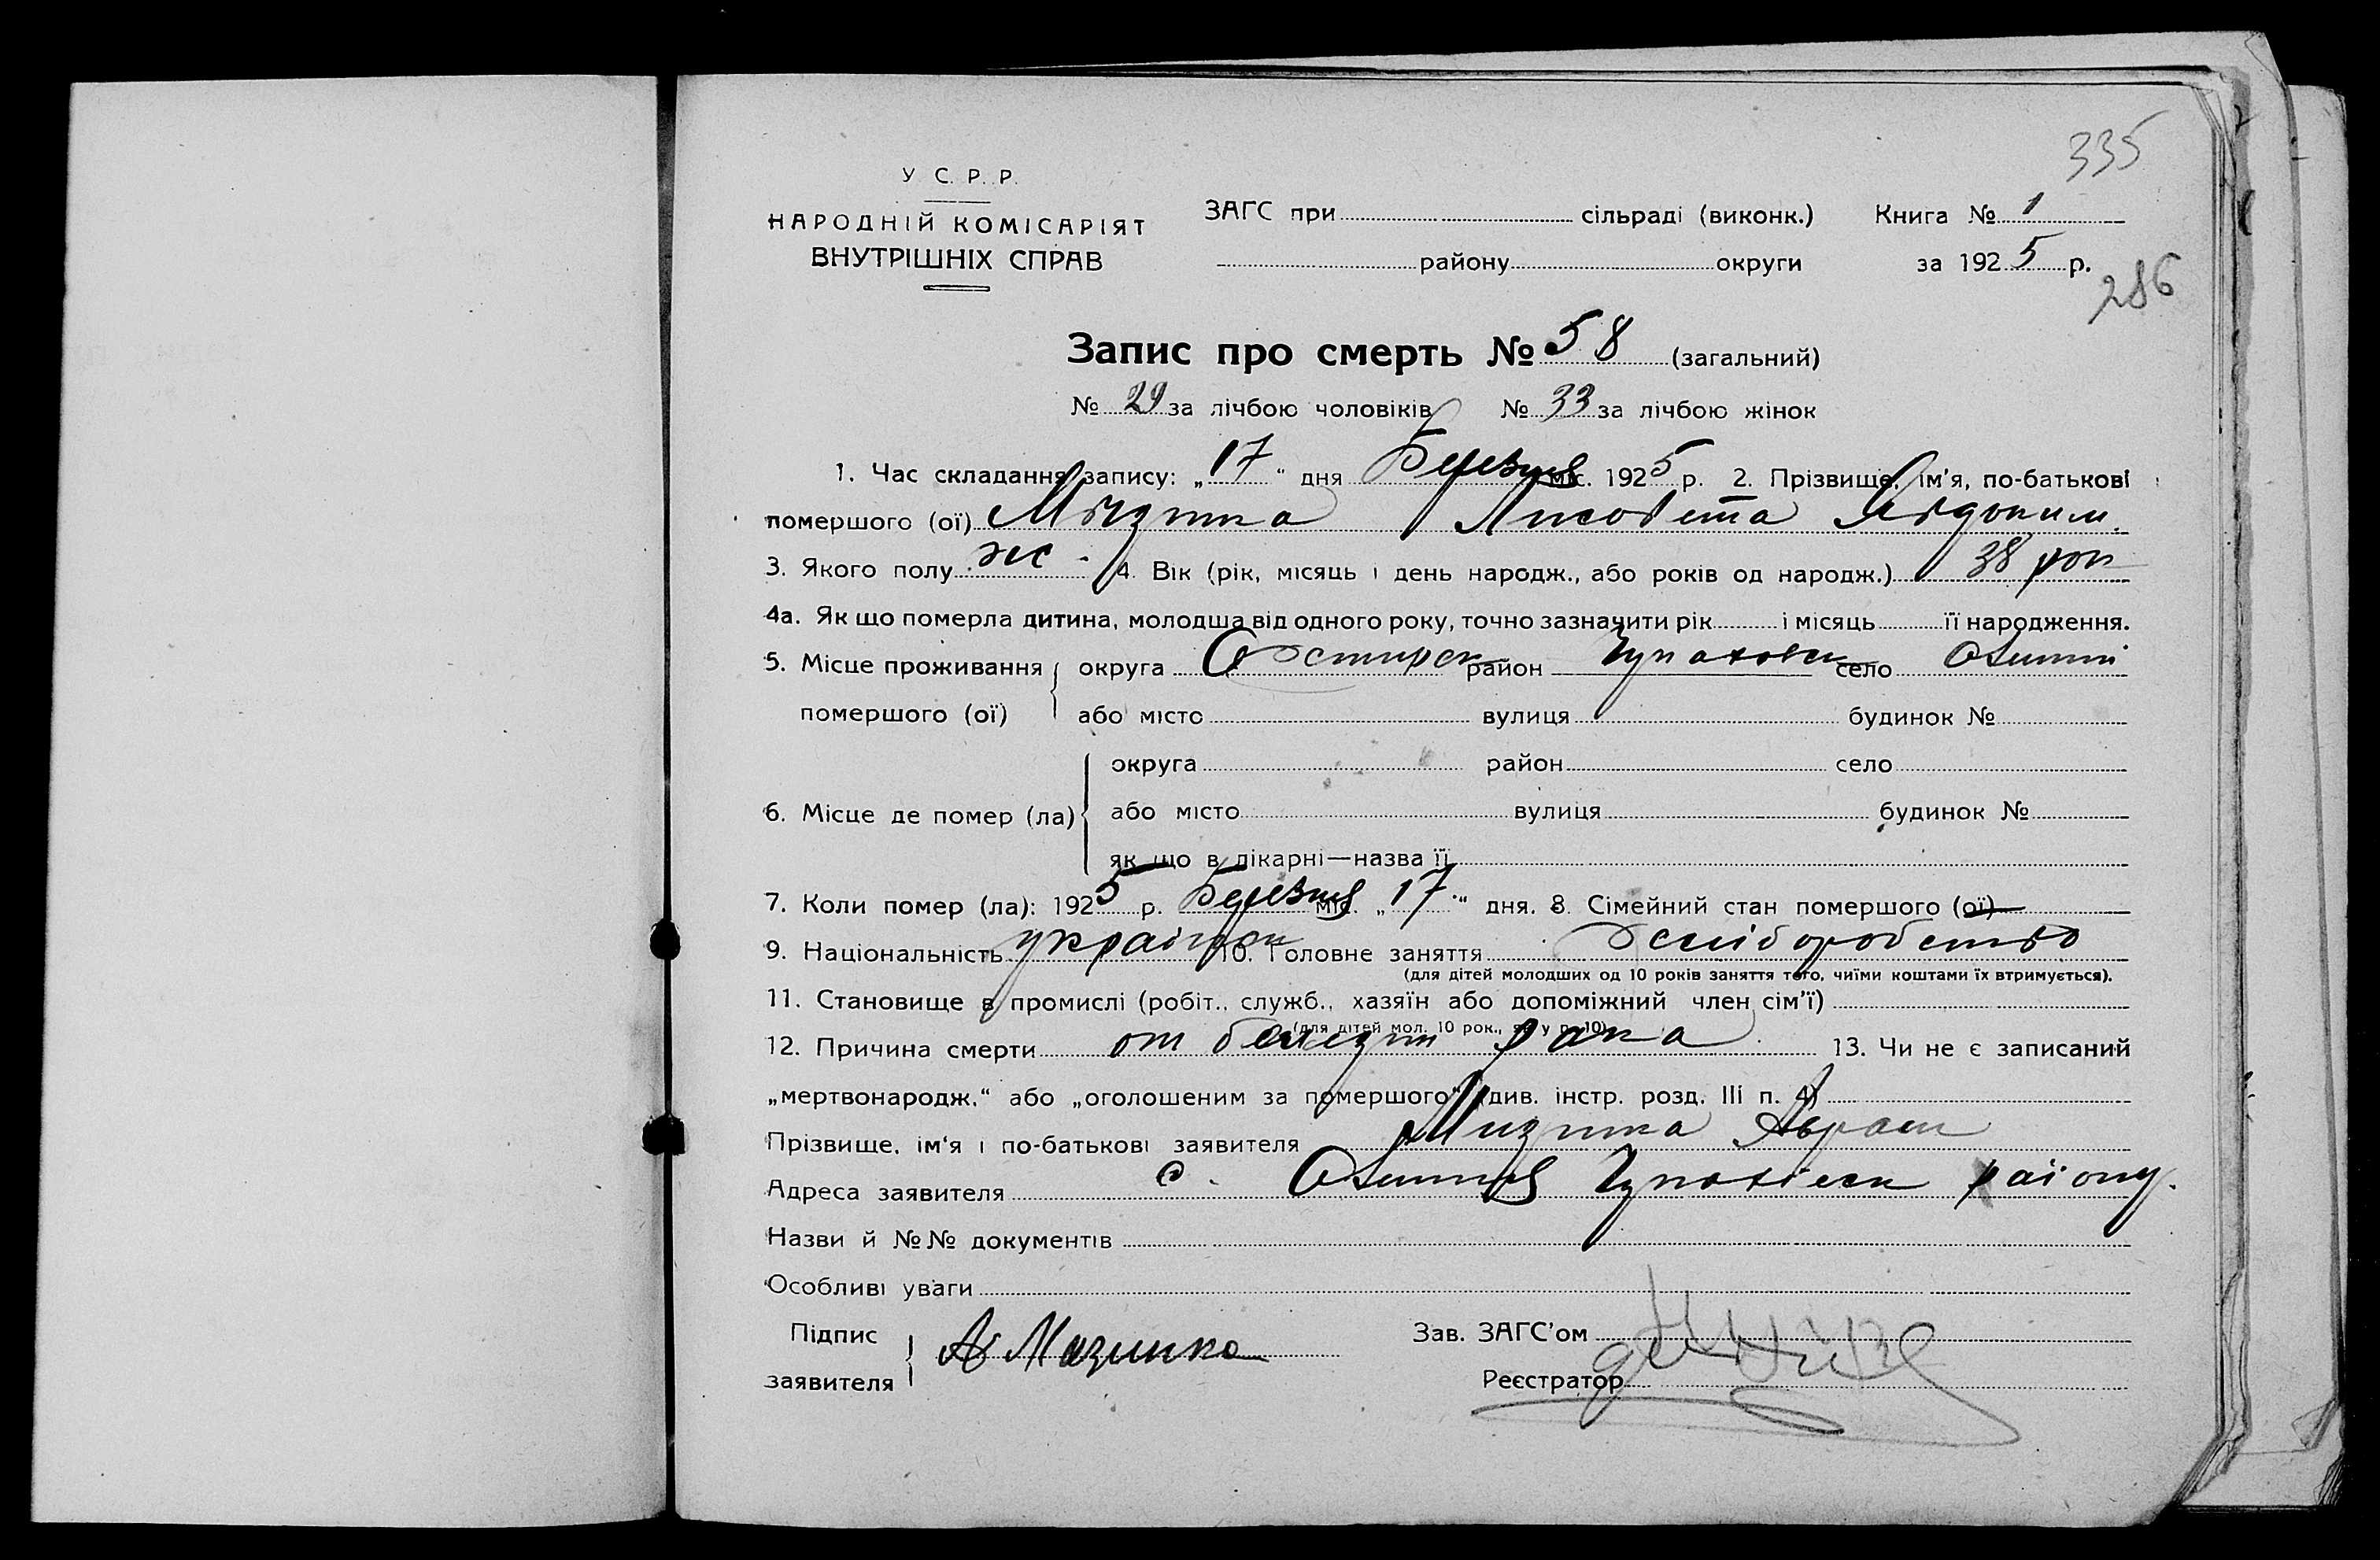 335
У С. Р. Р.
НАРОДНІЙ КОМІСАРІЯТ
ВНУТРІШНІХ СПРАВ
ЗАГС при сільраді (виконк.) Книга № 1
району округи за 1925 р.
286
Запис про смерть № 58 (загальний)
№ 29 за лічбою чоловіків № 33 за лічбою жінок
1. Час складання запису: „17" дня Березня міс. 1925 р. 2. Прізвище, ім'я, по-батькові
помершого (ої)
3. Якого полу ж - 4. Вік (рік, місяць і день народж., або років од народж.) 38 рок
4а. Як що померла дитина, молодша від одного року, точно зазначити рік і місяць її народження.
5. Місце проживання округа район село
помершого (ої) або місто вулиця будинок №
округа район село
6. Місце де помер (ла) або місто вулиця будинок №
як що в лікарні—назва її
7. Коли помер (ла): 1925 р. Березня міс. „17" дня. 8. Сімейний стан помершого (ої)
9. Національність україн 10. Головне заняття
(для дітей молодших од 10 років заняття того, чиїми коштами їх втримується).
11. Становище в промислі (робіт., служб., хазяїн або допоміжний член сім'ї)
(для дітей мол. 10 рок., як у п. 10)
12. Причина смерти от рака 13. Чи не є записаний
„мертвонародж." або „оголошеним за помершого" (див. інстр. розд. III п. 4)
Прізвище, ім'я і по-батькові заявителя
Адреса заявителя с. району.
Назви й №№ документів
Особливі уваги
Підпис
заявителя
Зав. ЗАГС'ом
Реєстратор